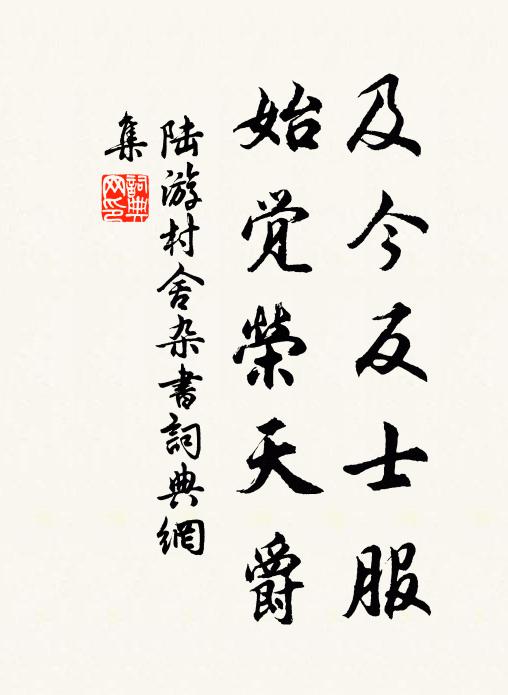 及今反士服
始觉荣天爵
陆游村舍杂书詞典網
集
詞典
网印